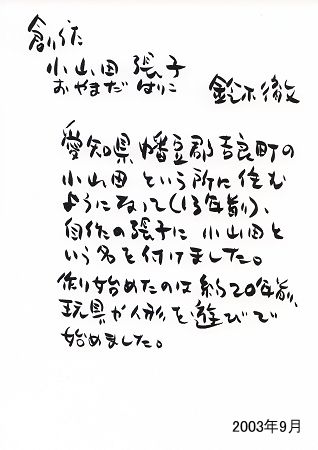 創作
小山田 張子
おやまだ はりこ
鈴木徹
愛知県幡豆郡吉良町の
小山田 という所に住む
ようになって(13年前)、
自作の張子に 小山田と
いう名を付けました。
作り始めたのは 約20年前、
玩具や人形を遊びで
始めました。
2003年9月